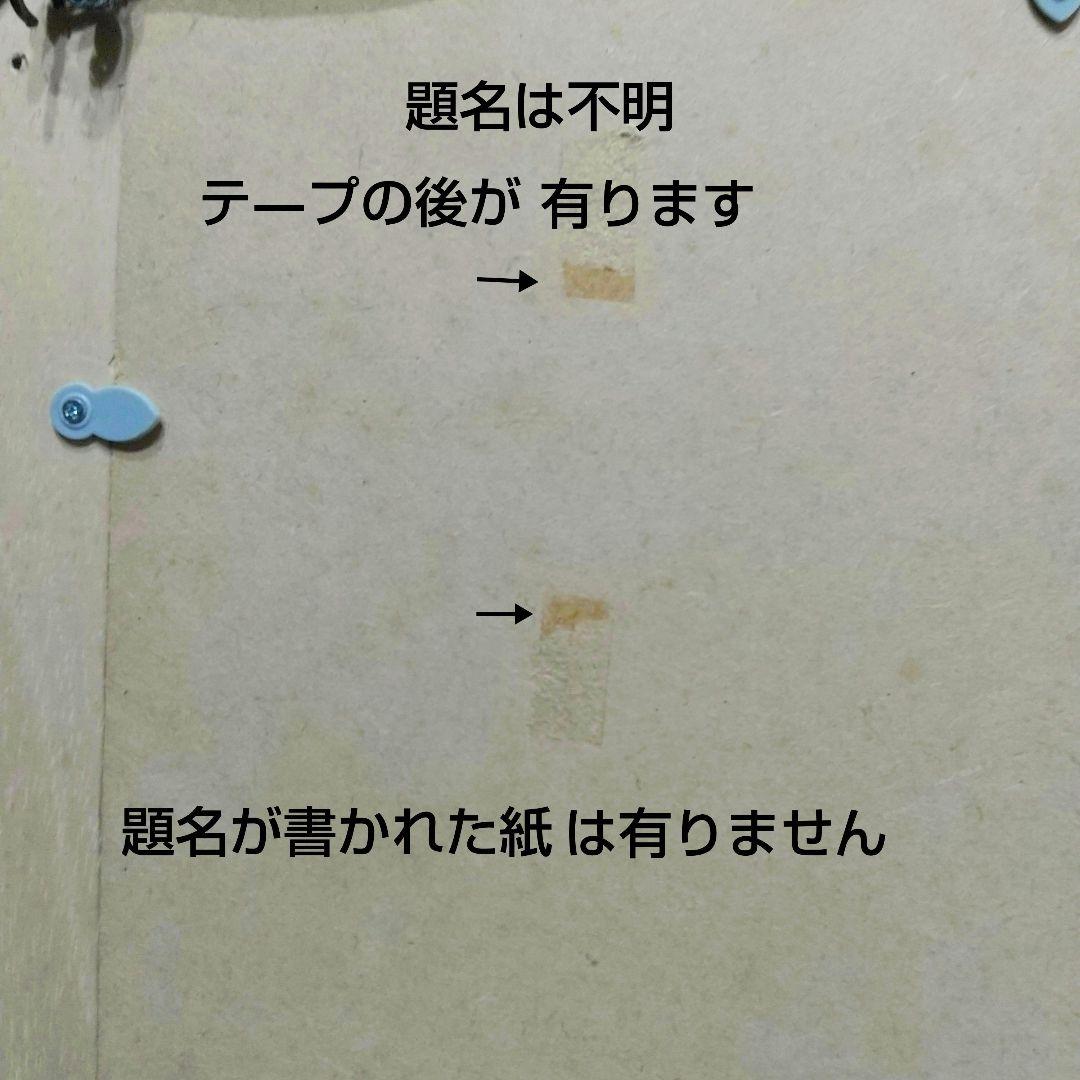 題名は不明
テープの後が 有ります
→
→
題名が書かれた紙 は有りません